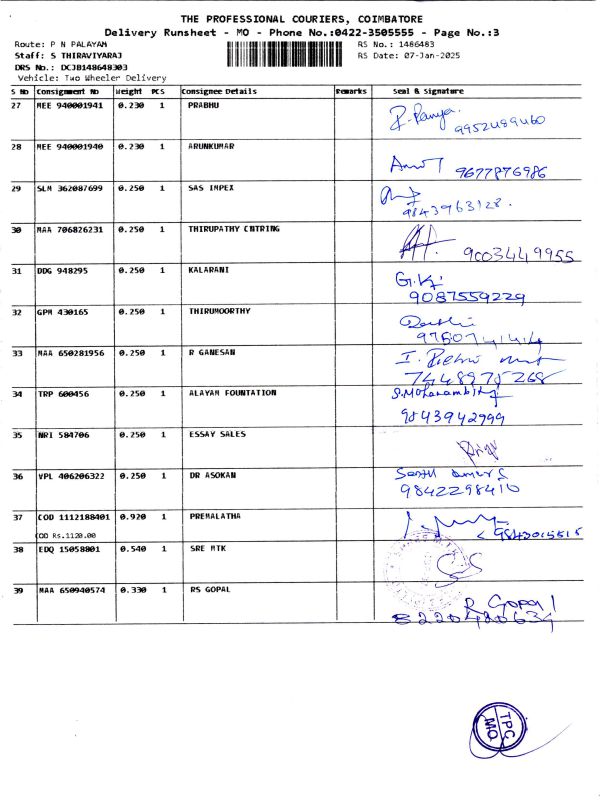 THE PROFESSIONAL COURIERS, COIMBATORE
Delivery Runsheet - MO - Phone No.:0422-3505555 - Page No.:3
Route: P N PALAYAM RS No.: 1486483
Staff: S THIRAVIYARAJ RS Date: 07-Jan-2025
DRS No.: DCJB148648303
Vehicle: Two Wheeler Delivery
S No Consignment No Weight PCS Consignee Details Remarks Seal & Signature
27 MEE 940001941 0.230 1 PRABHU
9952489460
28 MEE 940001940 0.230 1 ARUNKUMAR
9677876986
29 SLM 362087699 0.250 1 SAS IMPEX
9843963128.
30 MAA 706826231 0.250 1 THIRUPATHY CNTRING
9003449955
31 DDG 948295 0.250 1 KALARANI
9087559229
32 GPM 430165 0.250 1 THIRUMOORTHY
33 MAA 650281956 0.250 1 R GANESAN
7448975268
34 TRP 600456 0.250 1 ALAYAM FOUNTATION
9843942999
35 NRI 584706 0.250 1 ESSAY SALES
36 VPL 406206322 0.250 1 DR ASOKAN
9842298410
37 COD 1112188401 0.920 1 PREMALATHA
COD Rs.1120.00
9843015515
38 EDQ 15058801 0.540 1 SRE MTK
39 MAA 650940574 0.330 1 RS GOPAL
R Gopal
8220420634
TPC
MO